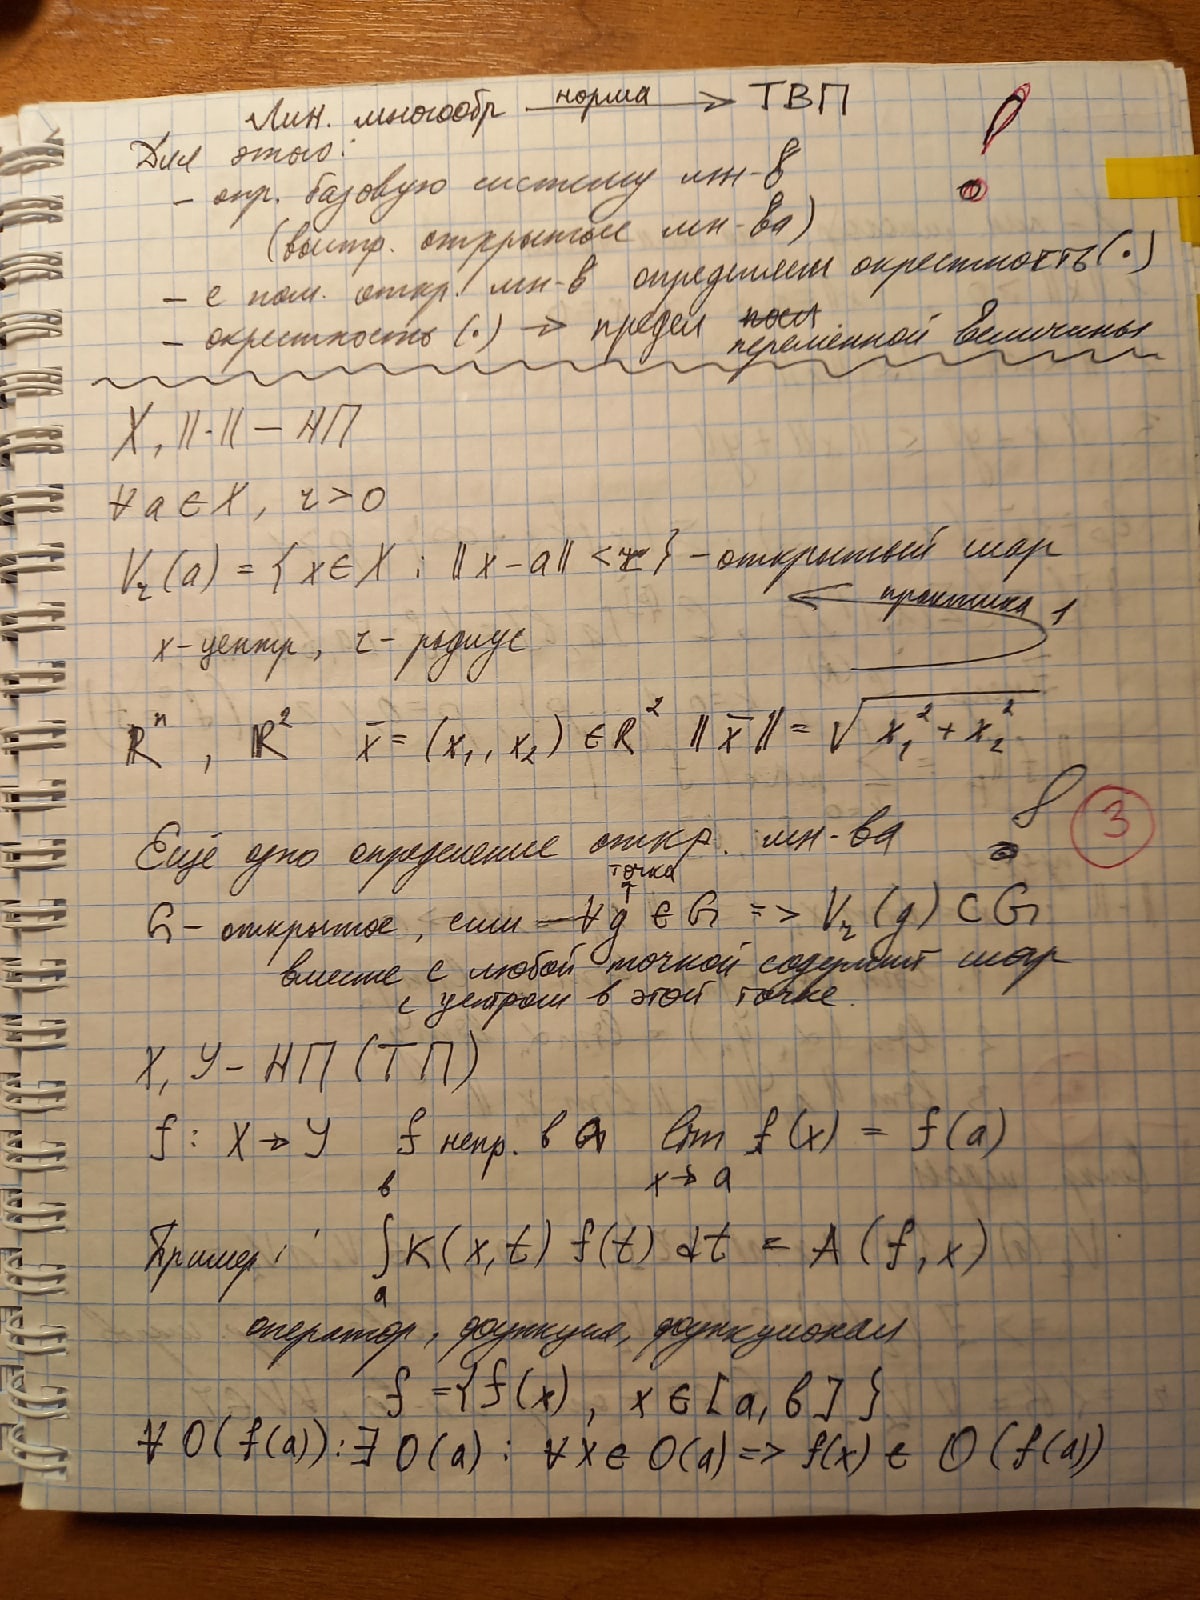 Лин. многообр —норма→ ТВП
Для этого:
- опр. базовую систему мн-в
(выстр. открытые мн-ва)
- с пом. откр. мн-в определяем окрестность (·)
- окрестность (·) → предел переменной величины
X, ||·|| – НП
∀ a ∈ X, r > 0
V_r(a) = { x ∈ X : ||x - a|| < r } - открытый шар
практика 1
x - центр, r - радиус
ℝⁿ, ℝ² x̄ = (x₁, x₂) ∈ ℝ² ||x̄|| = √(x₁² + x₂²)
3
Ещё одно определение откр. мн-ва
точка
G - открытое, если – ∀ g ∈ G => V_r(g) ⊂ G
вместе с любой точкой содержит шар
с центром в этой точке.
X, Y - НП (ТП)
f : X → Y f непр. в a lim_{x→a} f(x) = f(a)
Пример: ∫_a^b K(x,t) f(t) dt = A(f, x)
оператор, функция, функционал
f = { f(x), x ∈ [a, b] }
∀ O(f(a)) : ∃ O(a) : ∀ x ∈ O(a) => f(x) ∈ O(f(a))